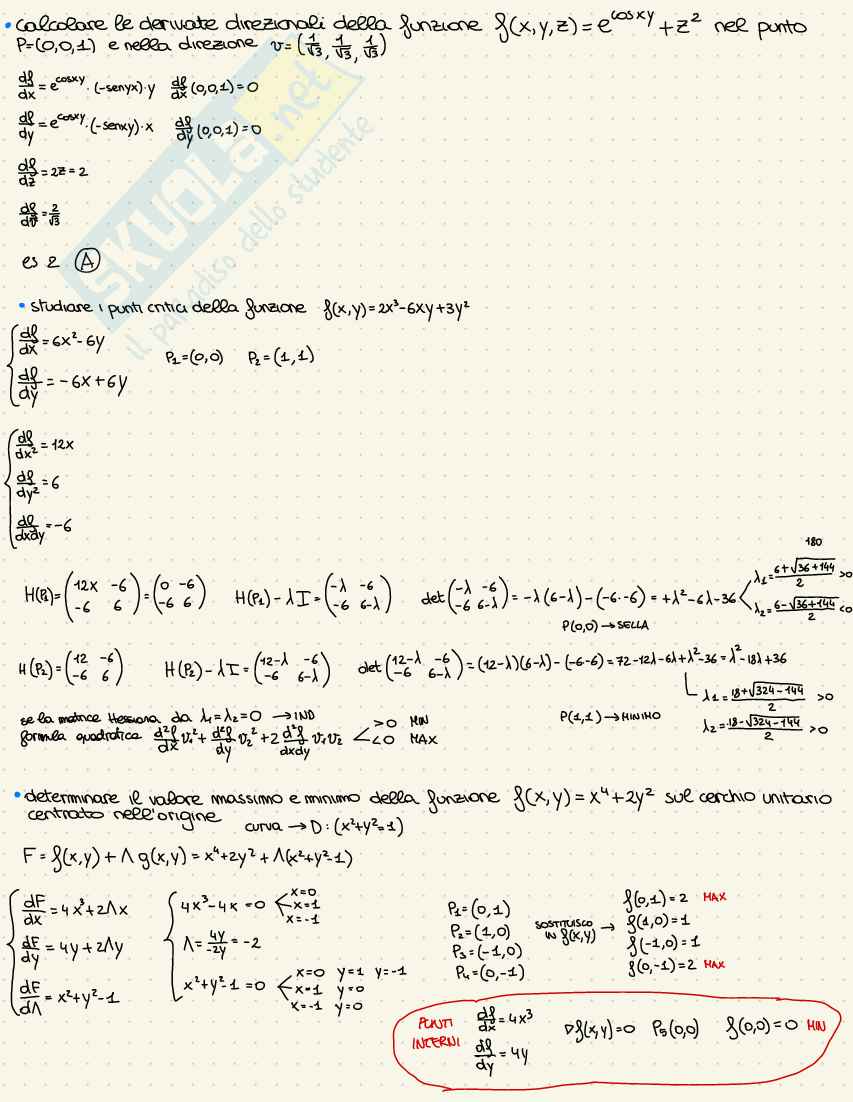 • calcolare le derivate direzionali della funzione f(x,y,z) = e^cosxy + z² nel punto
P=(0,0,1) e nella direzione v=(1/√3, 1/√3, 1/√3)
df/dx = e^cosxy · (-senyx)·y df/dx (0,0,1)=0
df/dy = e^cosxy · (-senxy)·x df/dy (0,0,1)=0
df/dz = 2z = 2
df/dv = 2/√3
es 2 A
• studiare i punti critici della funzione f(x,y)=2x³-6xy+3y²
df/dx = 6x²-6y
P₁=(0,0) P₂=(1,1)
df/dy = -6x+6y
df/dx² = 12x
df/dy² = 6
df/dxdy = -6
180
H(P₁)=(12x -6 / -6 6)=(0 -6 / -6 6) H(P₁)-λI=(-λ -6 / -6 6-λ) det(-λ -6 / -6 6-λ)=-λ(6-λ)-(-6·-6)=+λ²-6λ-36 λ₁=6+√36+144/2 >0
λ₂=6-√36+144/2 <0
P(0,0)→SELLA
H(P₂)=(12 -6 / -6 6) H(P₂)-λI=(12-λ -6 / -6 6-λ) det(12-λ -6 / -6 6-λ)=(12-λ)(6-λ)-(-6·6)=72-12λ-6λ+λ²-36=λ²-18λ+36
λ₁=18+√324-144/2 >0
λ₂=18-√324-144/2 >0
P(1,1)→MINIMO
se la matrice Hessiana da λ₁=λ₂=0 →IND
formula quadratica d²f/dx v₁²+d²f/dy v₂²+2 d²f/dxdy v₁v₂ >0 MIN
<0 MAX
• determinare il valore massimo e minimo della funzione f(x,y)=x⁴+2y² sul cerchio unitario
centrato nell'origine curva →D:(x²+y²=1)
F=f(x,y)+Λg(x,y)=x⁴+2y²+Λ(x²+y²-1)
dF/dx=4x³+2Λx
dF/dy=4y+2Λy
dF/dΛ=x²+y²-1
4x³-4x=0 x=0
x=1
x=-1
Λ=4y/-2y=-2
x²+y²-1=0 x=0 y=1 y=-1
x=1 y=0
x=-1 y=0
P₁=(0,1)
P₂=(1,0)
P₃=(-1,0)
P₄=(0,-1)
SOSTITUISCO
IN f(x,y) →
f(0,1)=2 MAX
f(1,0)=1
f(-1,0)=1
f(0,-1)=2 MAX
PUNTI
INTERNI
df/dx=4x³
df/dy=4y
∇f(x,y)=0 P₅(0,0) f(0,0)=0 MIN
SKUOLA.net
il paradiso dello studente